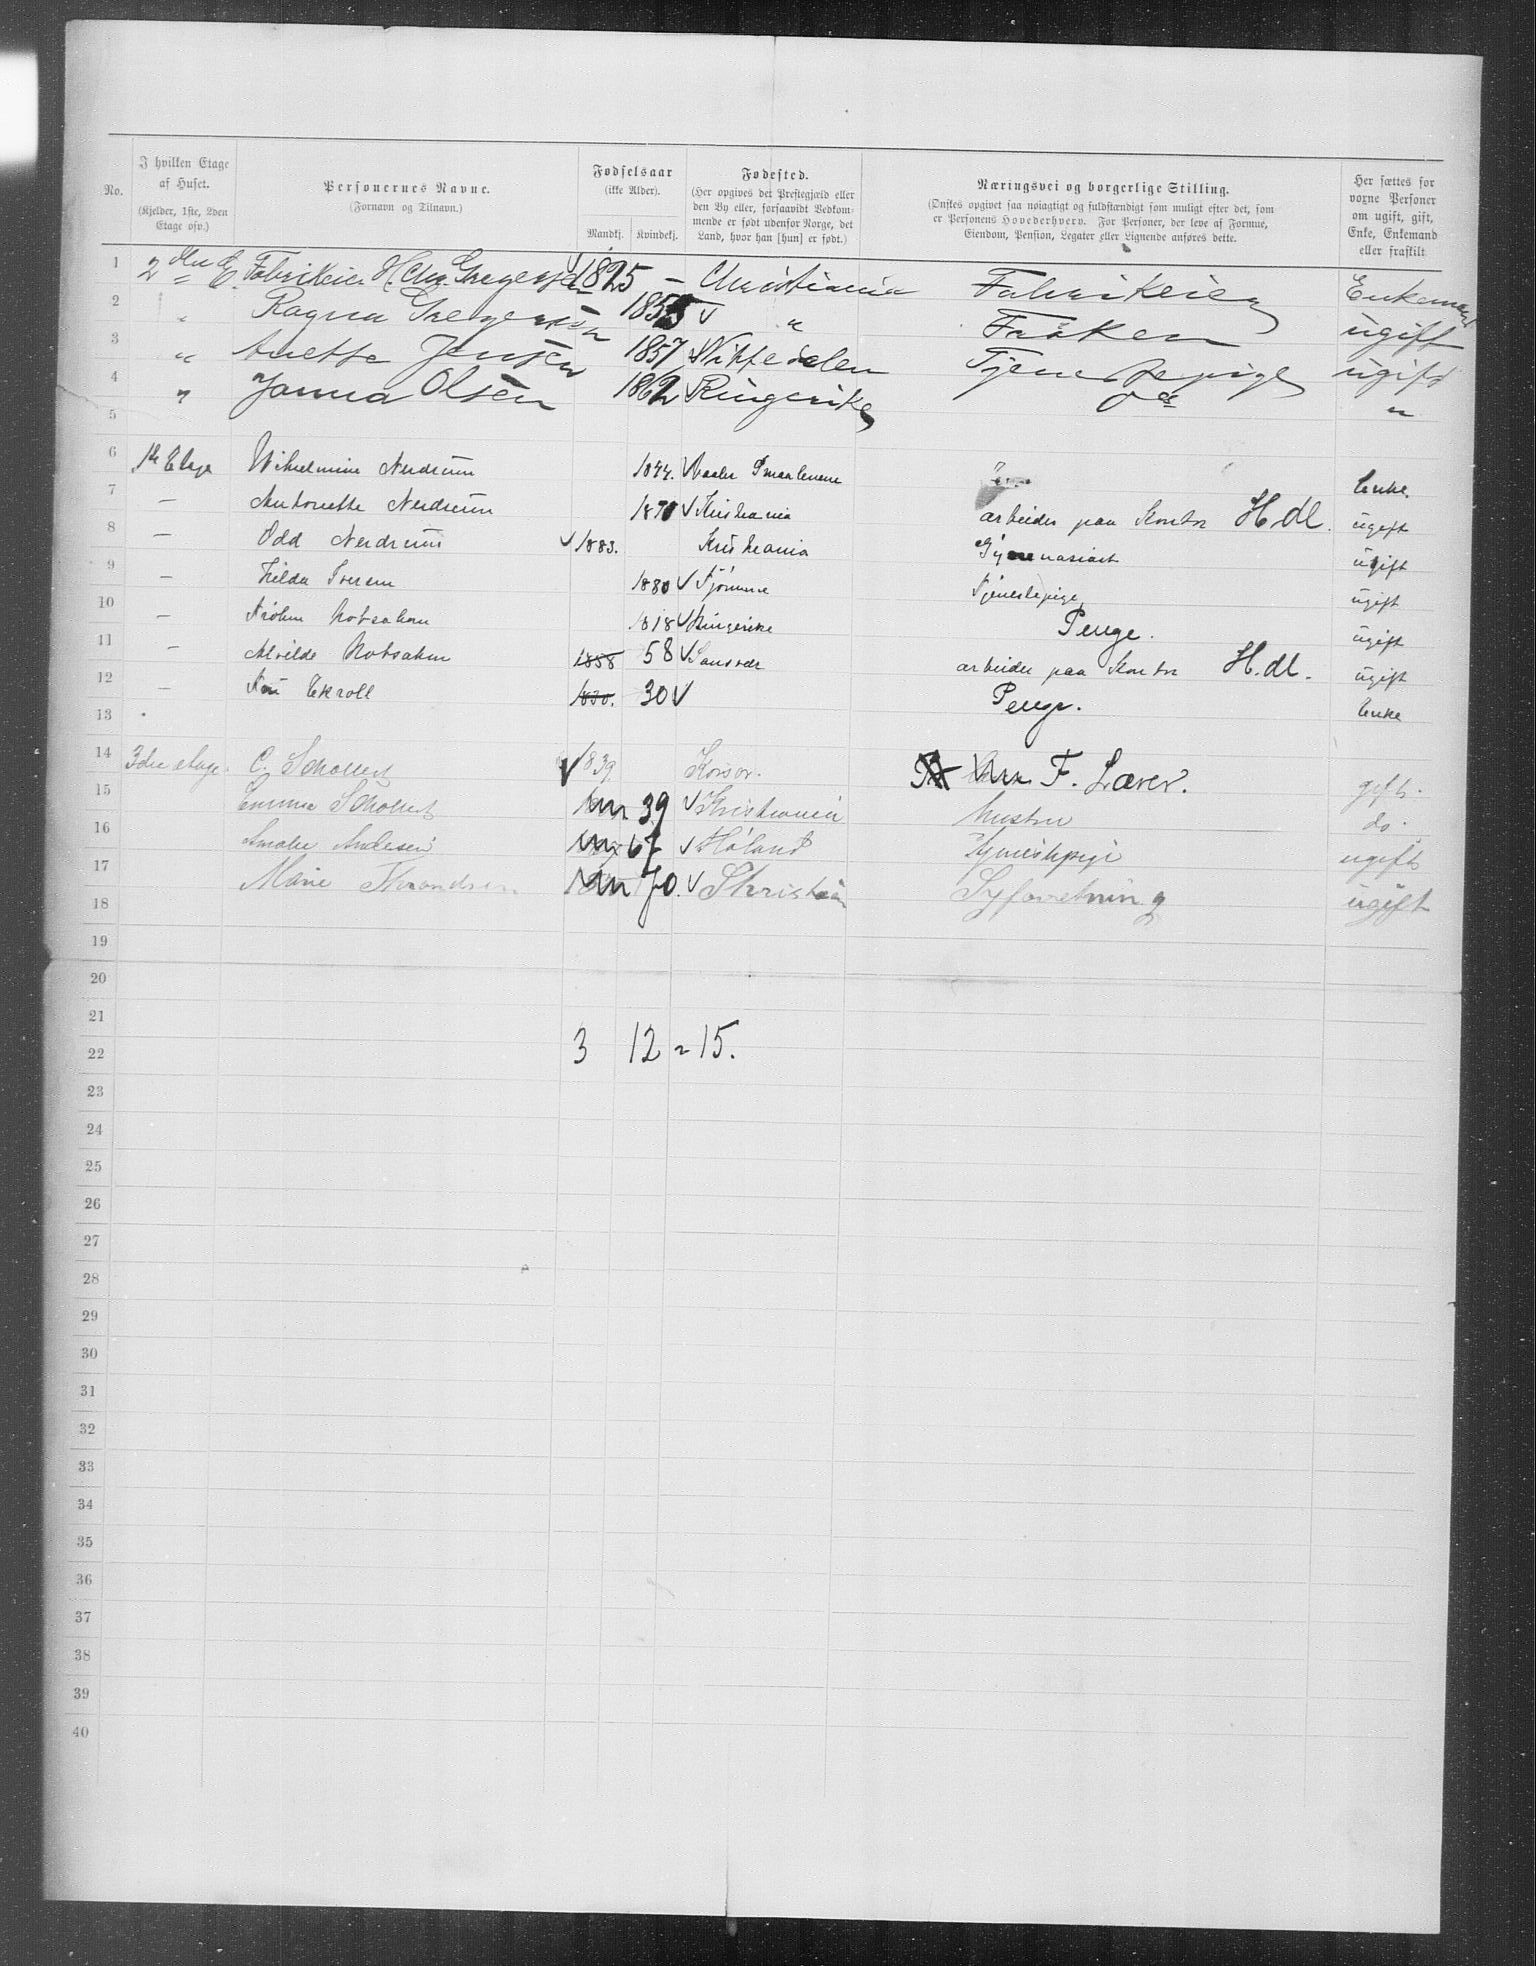 No.
I hvilken Etage af Huset.
(Kjelder, 1ste, 2den Etage osv.)
Personernes Navne.
(Fornavn og Tilnavn.)
Fødselsaar
(ikke Alder).
Mandkj. Kvindekj.
Fødested.
(Her opgives det Prestegjæld eller den By eller, forsaavidt Vedkommende er født udenfor Norge, det Land, hvor han [hun] er født.)
Næringsvei og borgerlige Stilling.
(Ønskes opgivet saa nøiagtigt og fuldstændigt som muligt efter det, som er Personens Hovederhverv. For Personer, der leve af Formue, Eiendom, Pension, Legater eller Lignende anføres dette.
Her sættes for voxne Personer om ugift, gift, Enke, Enkemand eller fraskilt
1 2den E. Fabrikeier H. Chr. Gregersen 1825 – Christiania Fabrikeier Enkemand
2 " Ragna Gregersen 1855 " Frøken ugift
3 " Anette Jensen 1857 Nittedalen Tjenestepige ugift
4 " Janna Olsen 1862 Ringerike do "
5
6 1ste Etage Wilhelmine Nerdrum 1844. Vaaler Smaalenene Enke.
7 — Antonette Nerdrum 1870 Kristiania arbeider paa Kontor H.dl. ugift
8 — Odd Nerdrum 1883. Kristiania Gymnasiast ugift
9 — Hilda Iversen 1880 Tjømme Tjenestepige ugift
10 — 1818 Ringerike Penge. ugift
11 — Alvilde 1858 58 Sansvær arbeider paa Kontor H.dl. ugift
12 — Ekroll 1830. 30 Penge. Enke
13
14 3die etage. C. 1839 Korsør. F. Lærer. gift.
15 Emma 39 Kristiania hustru do.
16 Amalie Andersen 67 Høland Tjenestepige ugift
17 Marie Strandsen 70. Kristiania Syforretning ugift
18
19
20
21
22 3 12 = 15.
23
24
25
26
27
28
29
30
31
32
33
34
35
36
37
38
39
40